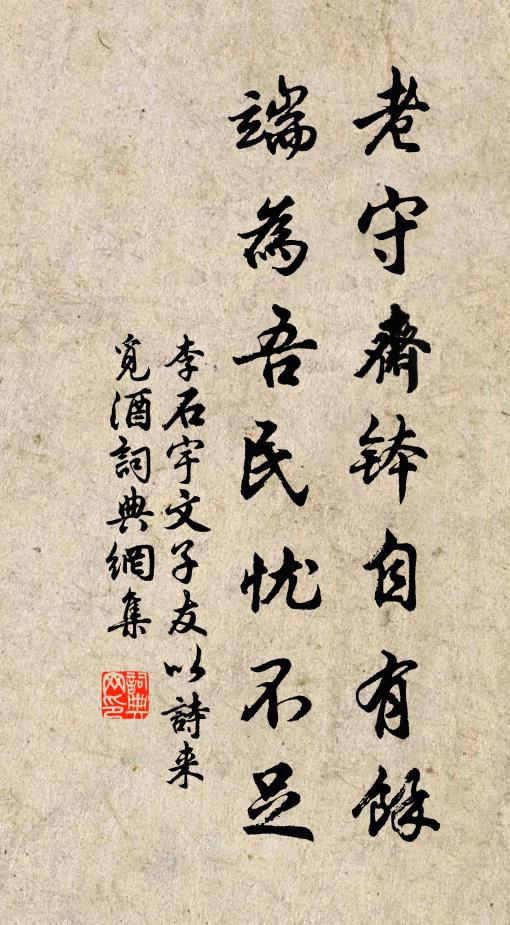 老守齋鉢自有餘
端為吾民忧不足
李石宇文子友以詩来
覓酒詞典網集
詞典网印